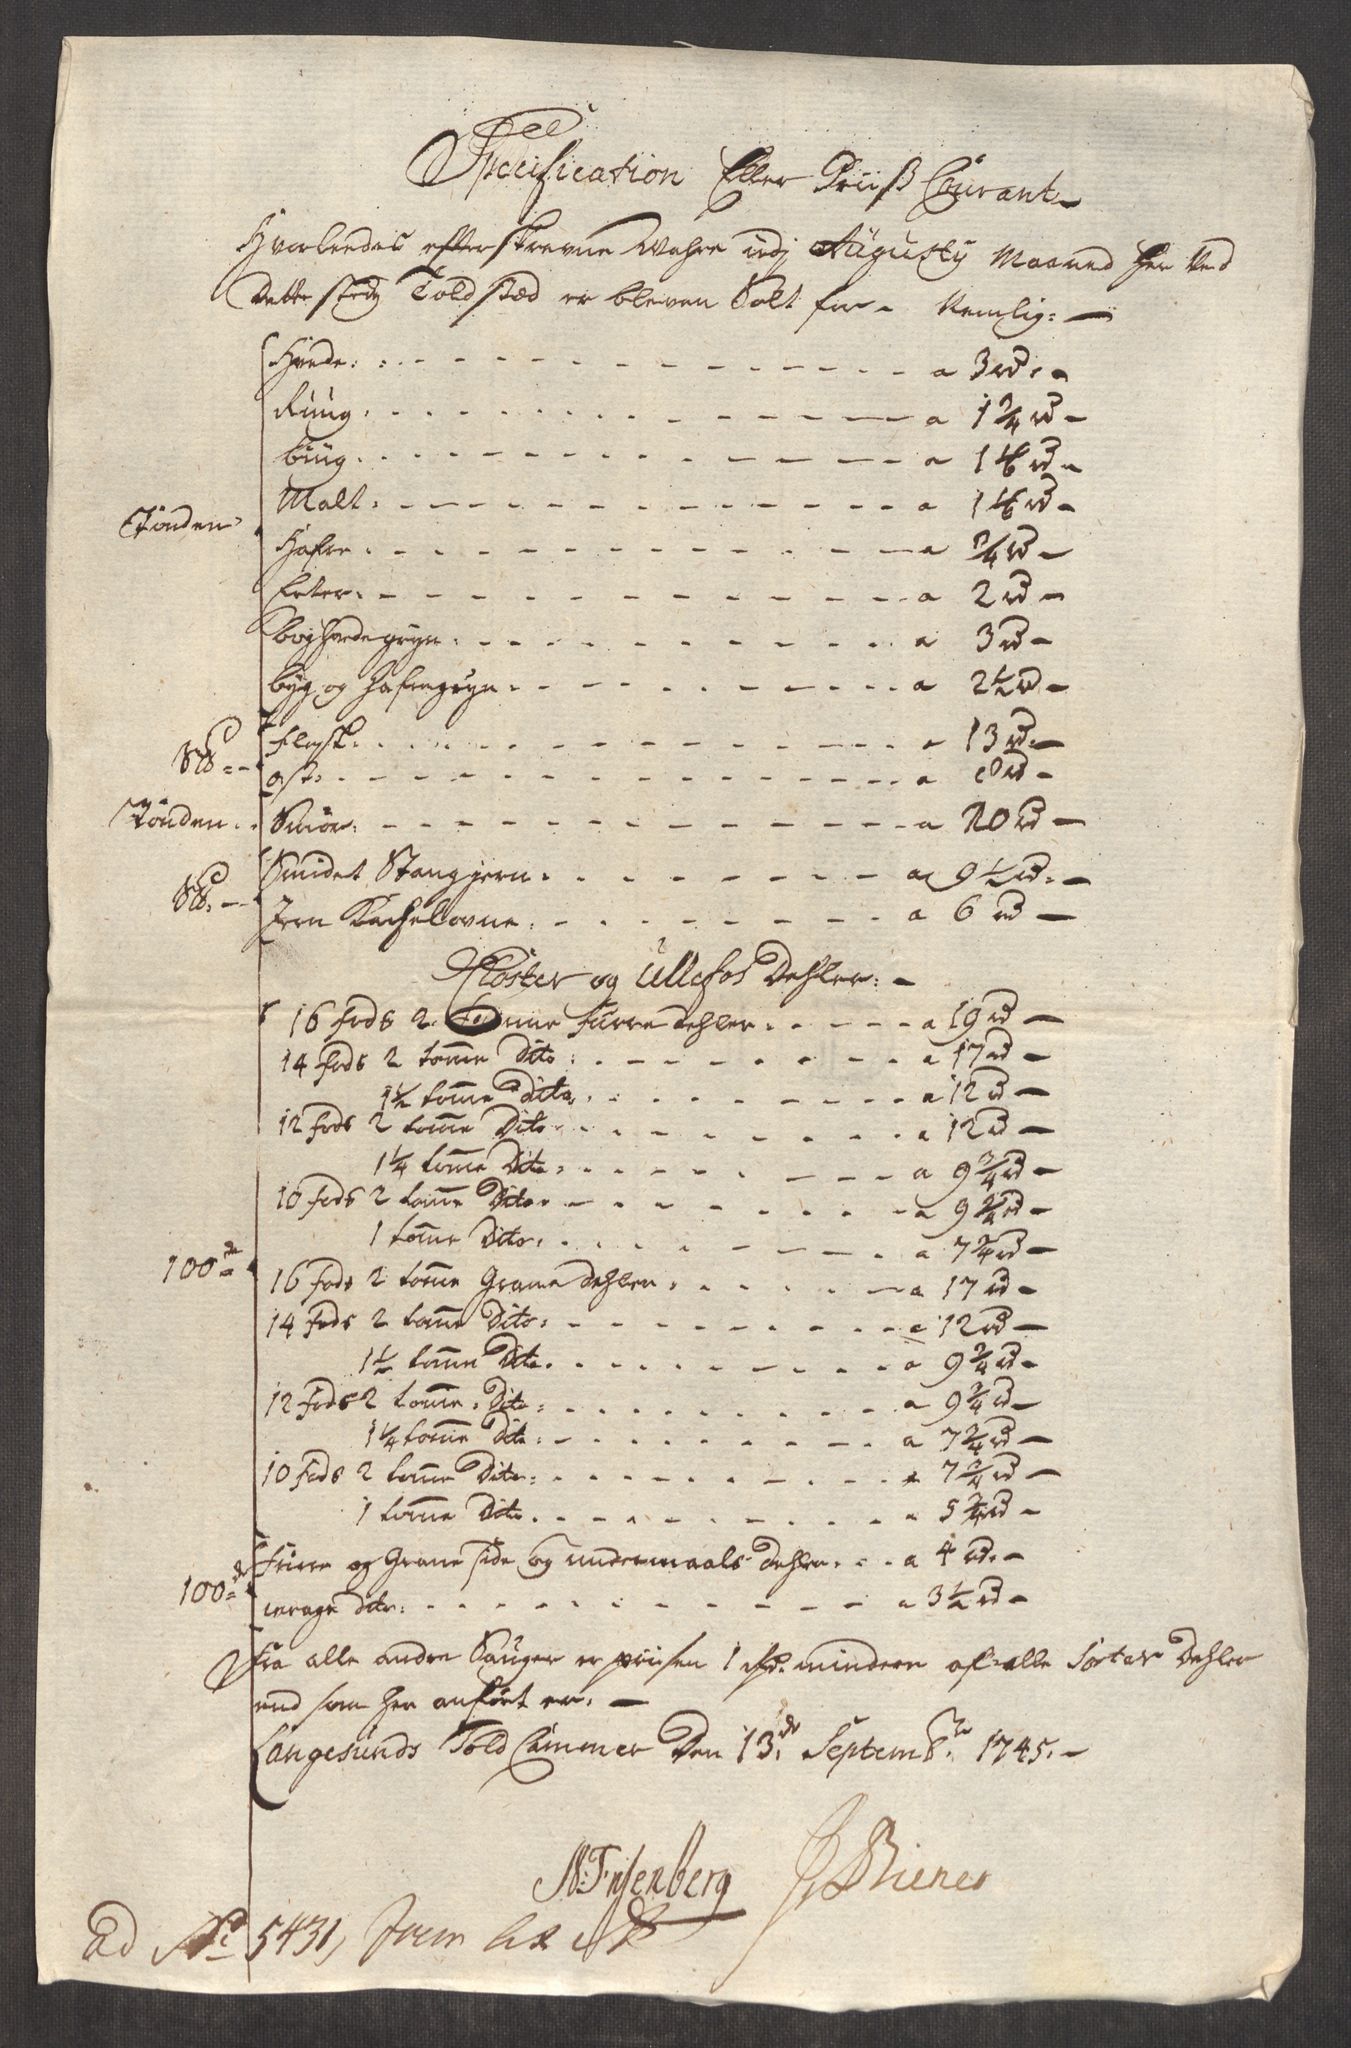 Specification Eller Priiß Courant
Hvorleedes efterskrevne Wahre udj Augusty Maaned her Ved
Dette stedz Told stæd er bleven Solt for - Nemlig:
Hvede. a 3 rd.
Rüug. a 1 3/4 rd
Biüg. a 1 1/6 rd
Malt. a 1 1/6 rd
Tönden
Hafre. a 3/4 rd
Erter. a 2 rd
boghvedegryn. a 3 rd
byg og hafregryn. a 2 1/2 rd
Flesk. a 13 rd.
S℔
ost. a 8 rd
Tönden. Smör. a 10 rd
Smidet Stangjern. a 9 1/2 rd.
S℔.
Jern Kachelovne. a 6 rd
Closter og Ullefos Dehler:
16 fods 2 tomme Furre dehler. a 19 rd
14 fods 2 tome Dito. a 17 rd
1 1/2 tome Dito. a 12 rd
12 fods 2 tome Dito a 12 rd
1 1/4 tome Dito. a 9 3/4 rd
10 fods 2 tome Dito. a 9 3/4 rd
1 tome Dito. a 7 3/4 rd
100de
16 fods 2 tome Grane dehler. a 17 rd
14 fods 2 tome Dito. a 12 rd
1 1/2 tome Dito. a 9 3/4 rd
12 fods 2 tome. Dito. a 9 3/4 rd
1 1/4 tome Dito. a 7 3/4 rd
10 fods 2 tome Dito. a 7 3/4 rd
1 tome Dito. a 5 3/4 rd
Furre og Grane side og undermaals dehler. a 4 rd.
100de
wrage dito. a 3 1/2 rd
Fra alle andre Sauger er priisen 1 rd. mindere af alle Sorter Dehler
end som her anfört er.
Langesunds Told Cammer Den 13de Septembr 1745.
N: Frisenberg Biener
Ad No 5431,